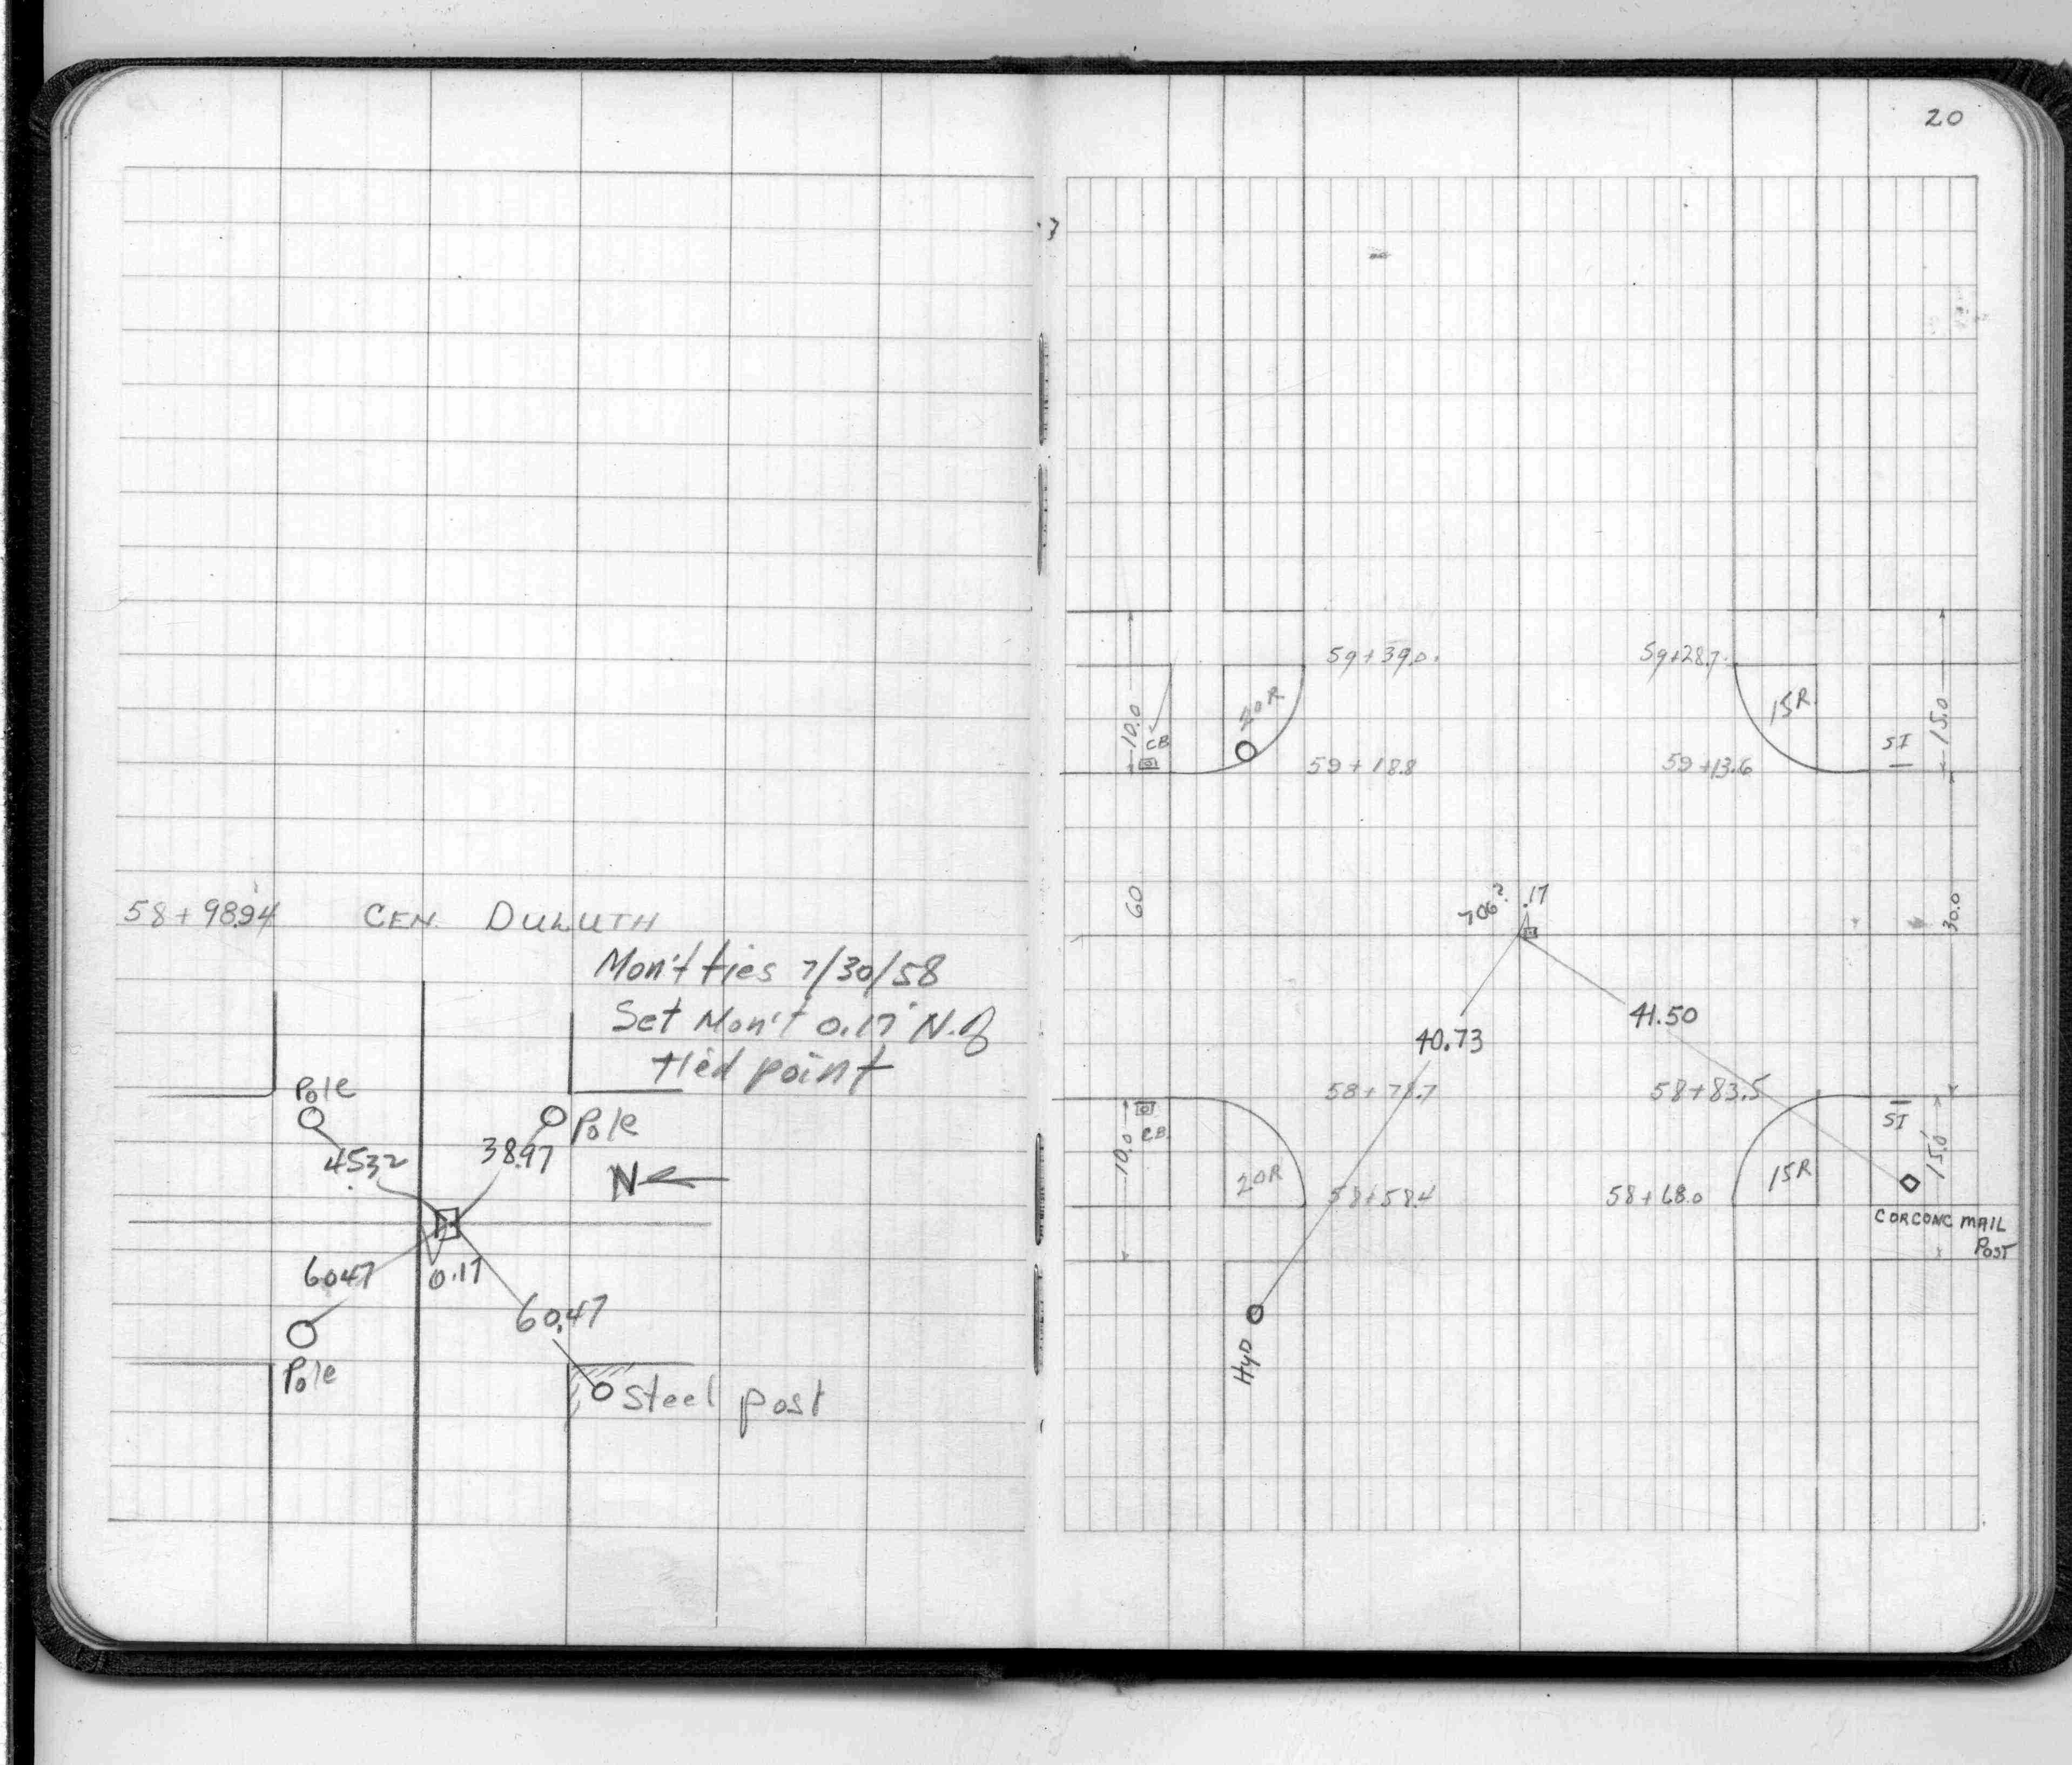 58+98.94 CEN. DULUTH
Mon't ties 7/30/58
Set Mon't 0.17' N. of
tied point
Pole
Pole
45.32
38.97
N
60.47
0.17
60.47
Pole
Steel post
20
59+39.0
59+28.7
20R
15R
10.0
CB
SI
15.0
59+18.8
59+13.6
60
706?
.17
30.0
40.73
41.50
58+78.7
58+83.5
CB
SI
10.0
20R
15R
15.0'
58+58.4
58+68.0
COR CONC MAIL
POST
HYD